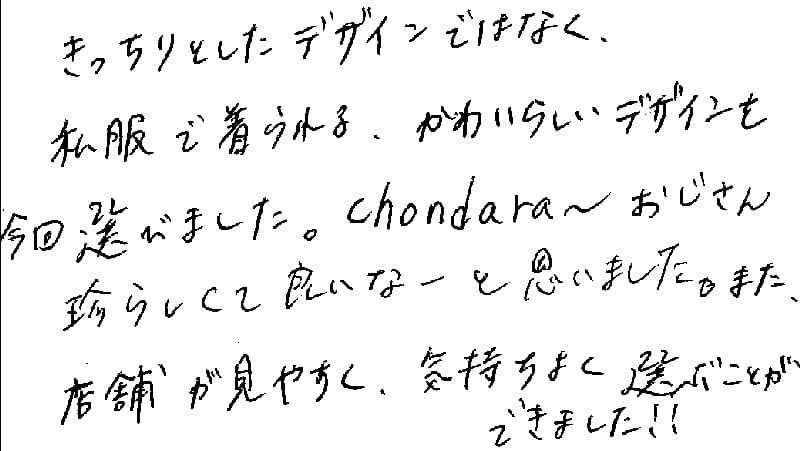 きっちりとしたデザインではなく、
私服で着られる、かわいらしいデザインを
今回選べました。chondara〜おじさん
珍らしくて良いなーと思いました。また、
店舗が見やすく、気持ちよく選ぶことが
できました!!